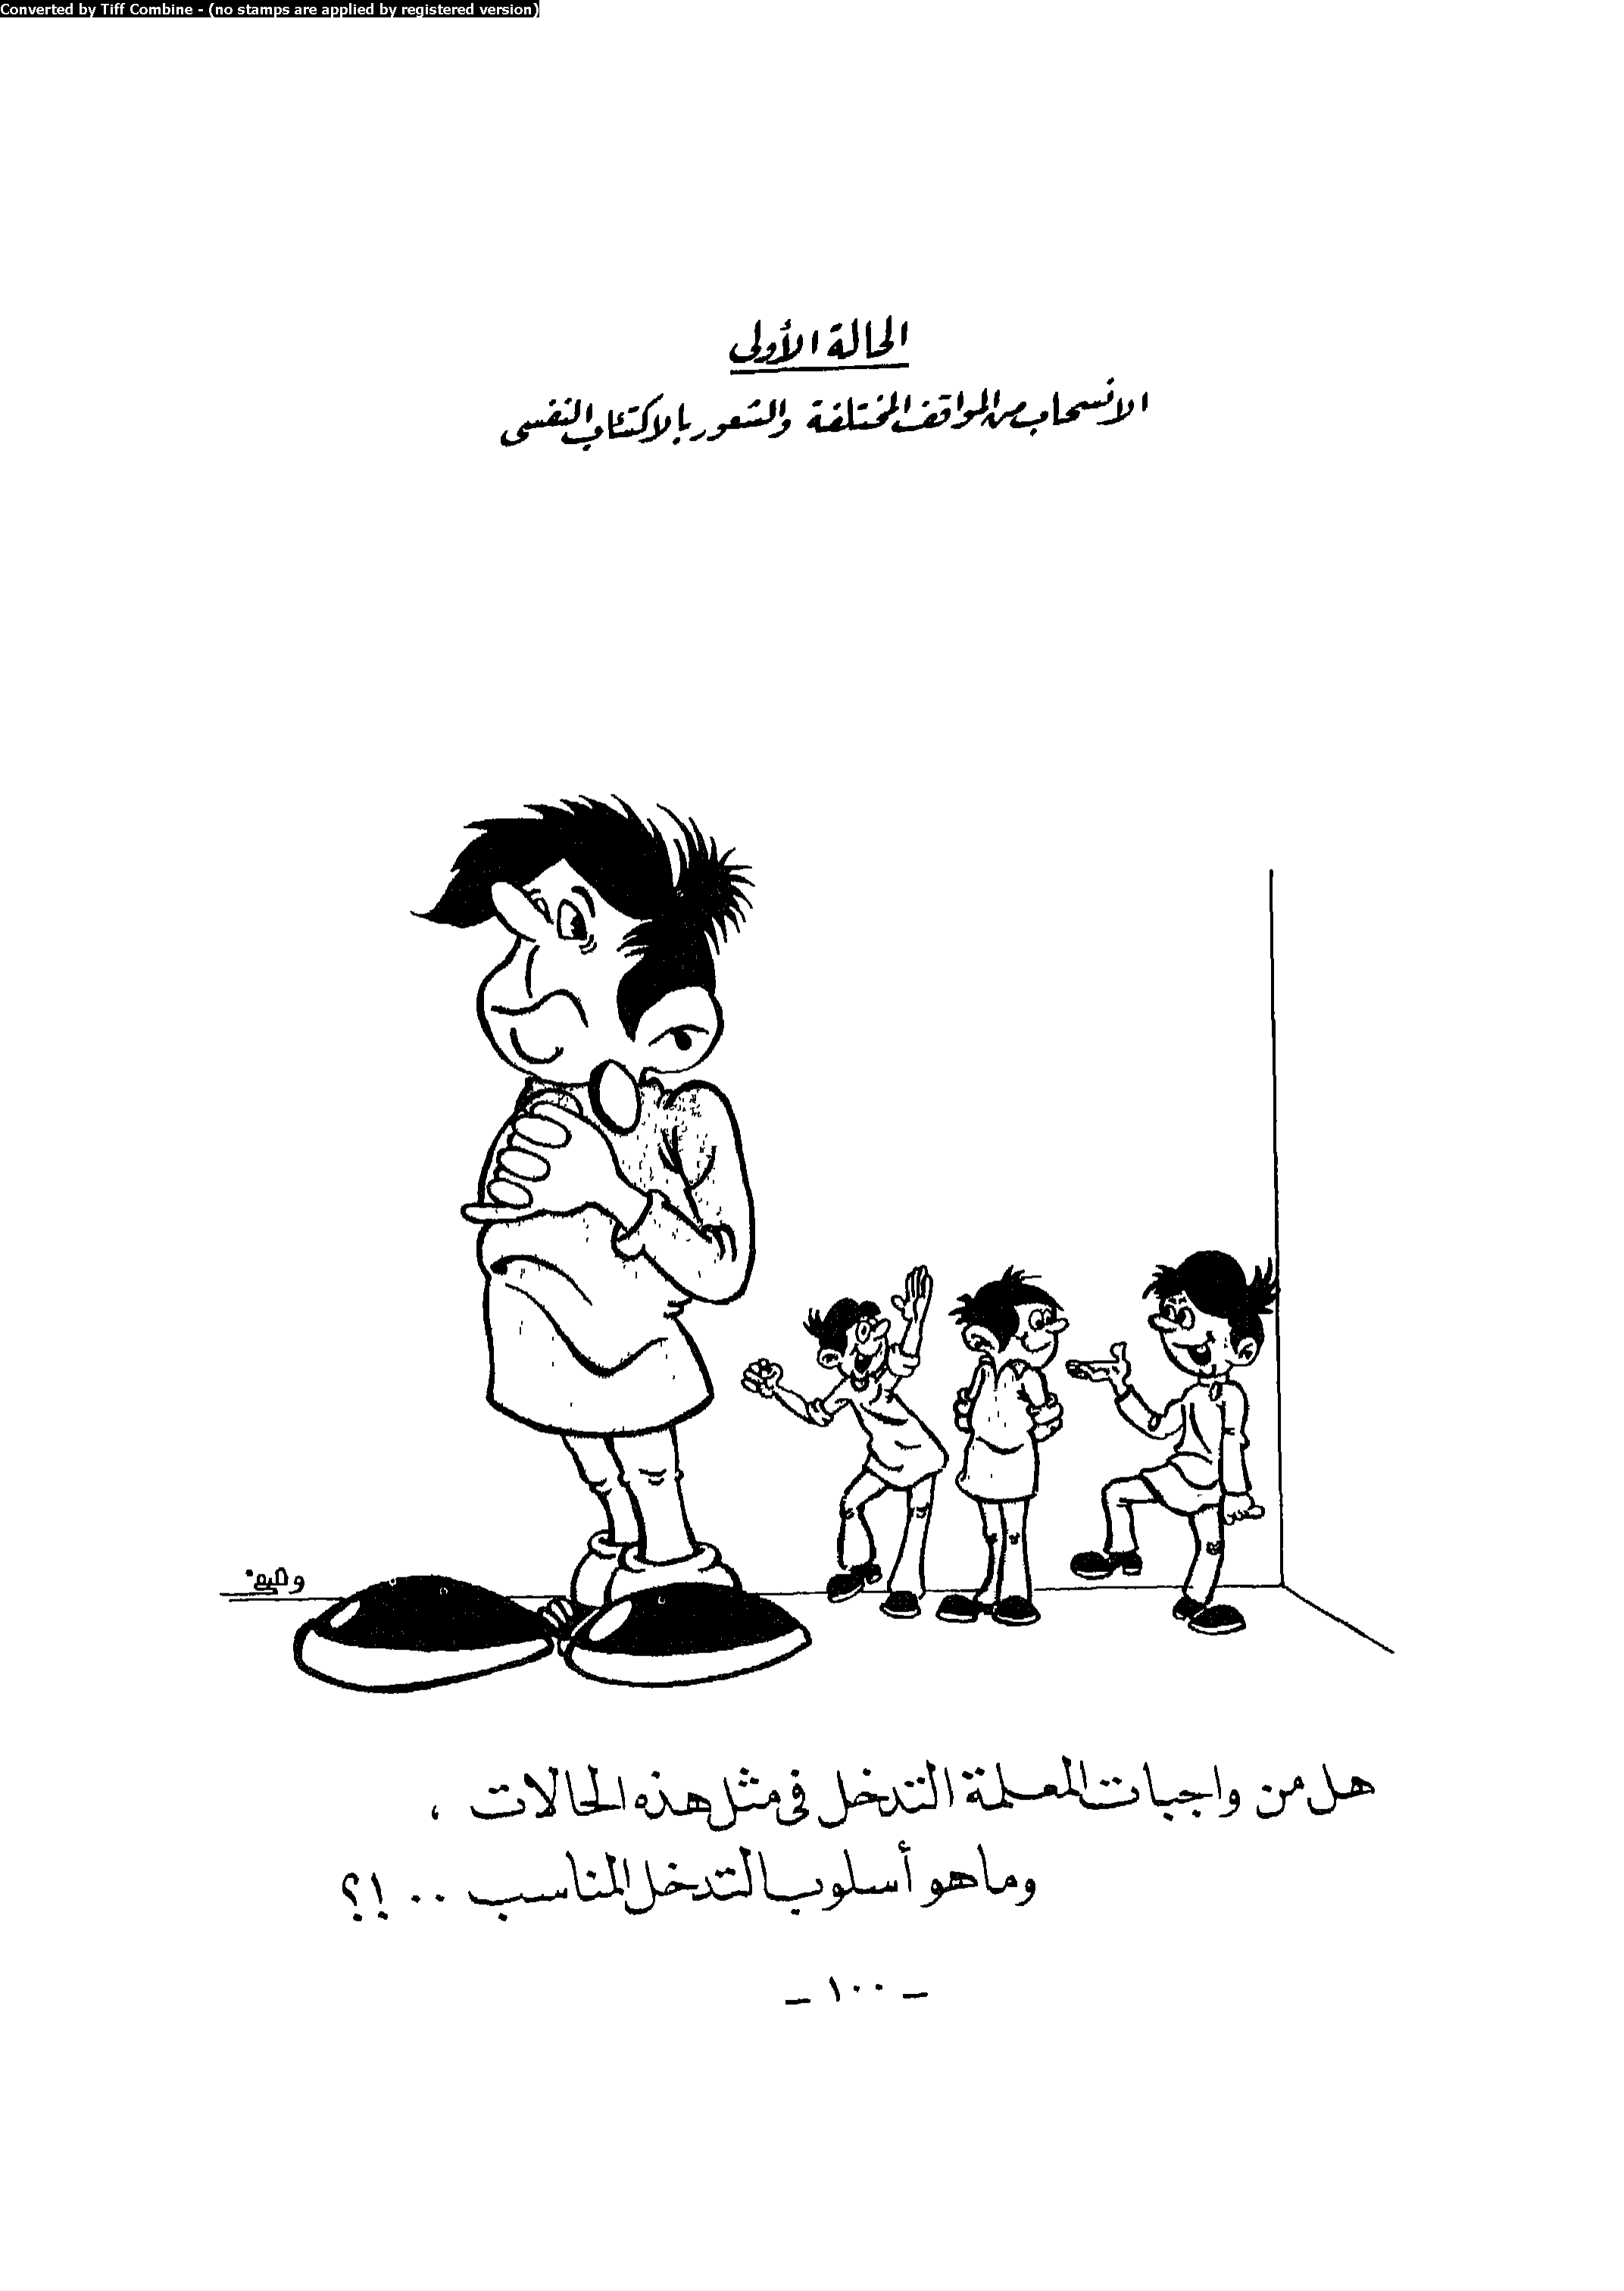 Converted by Tiff Combine - (no stamps are applied by registered version)
الحالة الأولى
الانسحاب من المواقف المختلفة والشعور بالاكتئاب النفسى
هل من واجبات المعلمة التدخل فى مثل هذه الحالات ،
وما هو أسلوب التدخل المناسب ٠٠ !؟
ـ ١٠٠ ـ